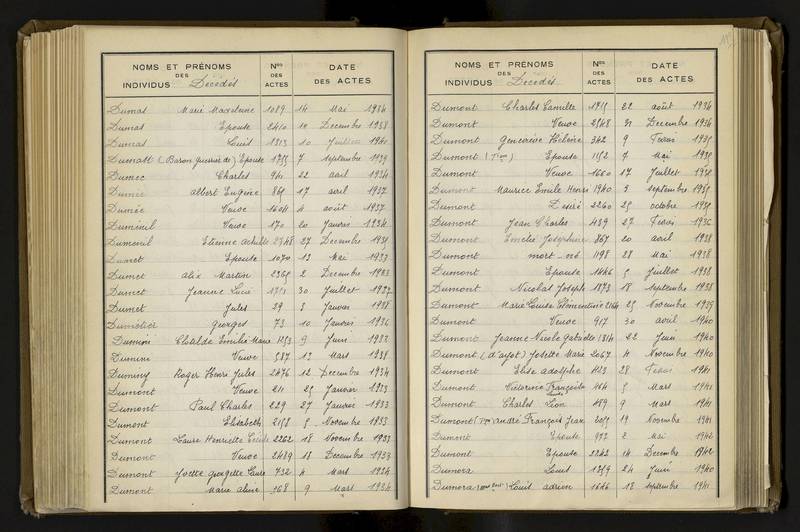 NOMS ET PRÉNOMS DES INDIVIDUS Décédés Nos DES ACTES DATE DES ACTES
Dumas Marie Madeleine 1089 14 Mai 1934
Dumas Epouse 2410 10 Decembre 1938
Dumas Louis 1313 10 Juillet 1941
Dumast (Baron guerrier de) Epouse 1755 7 septembre 1939
Dumec Charles 941 22 avril 1934
Dumée albert Eugène 865 17 avril 1937
Dumée Veuve 1604 4 août 1937
Duménil Veuve 170 20 Janvier 1934
Dumenil Etienne achille 2748 27 Decembre 1935
Epouse 1070 13 Mai 1933
Dumet alix Martin 2365 2 Decembre 1933
Dumet Jeanne 30 Juillet 1937
Dumet Jules 29 3 Janvier 1938
Georges 73 10 Janvier 1936
Clotilde Emilie Marie 9 Juin 1933
Veuve 587 13 Mars 1938
Duminy Roger Henri Jules 2476 12 Decembre 1934
Dumont Veuve 211 25 Janvier 1933
Dumont Paul Charles 229 27 Janvier 1933
Dumont Elisabeth 2158 5 Novembre 1933
Dumont Laure Henriette 2262 18 Novembre 1933
Dumont Veuve 2489 18 Decembre 1933
Dumont georgette Laure 732 4 Mars 1934
Dumont Marie aline 768 9 Mars 1934
NOMS ET PRÉNOMS DES INDIVIDUS Décédés Nos DES ACTES DATE DES ACTES
Dumont Charles Camille 1715 22 août 1934
Dumont Veuve 2548 31 Decembre 1934
Dumont Geneviève Hélène 342 9 Février 1935
Dumont Epouse 1152 7 Mai 1935
Dumont Veuve 1660 17 Juillet 1935
Dumont Maurice Emile Henri 1940 3 septembre 1935
Dumont Désiré 2260 25 octobre 1935
Dumont Jean Charles 439 27 Février 1936
Dumont Emélie Joséphine 867 20 avril 1938
Dumont mort-né 1198 28 Mai 1938
Dumont Epouse 1446 5 Juillet 1938
Dumont Nicolas Joseph 1873 18 septembre 1938
Dumont Marie Louise Clémentine 2164 25 Novembre 1939
Dumont Veuve 917 30 avril 1940
Dumont Jeanne Nicole Gabrielle 1314 22 Juin 1940
Dumont Josette Marie 2067 4 Novembre 1940
Dumont Elise adolphe 423 28 Février 1941
Dumont Victorine Françoise 464 5 Mars 1941
Dumont Charles Léon 489 9 Mars 1941
Dumont andré François Jean 2059 19 Novembre 1941
Dumont Epouse 932 2 Mai 1942
Dumont Epouse 2242 14 Decembre 1942
Dumora Louis 1359 24 Juin 1940
Dumora Louis adrien 1646 18 septembre 1941